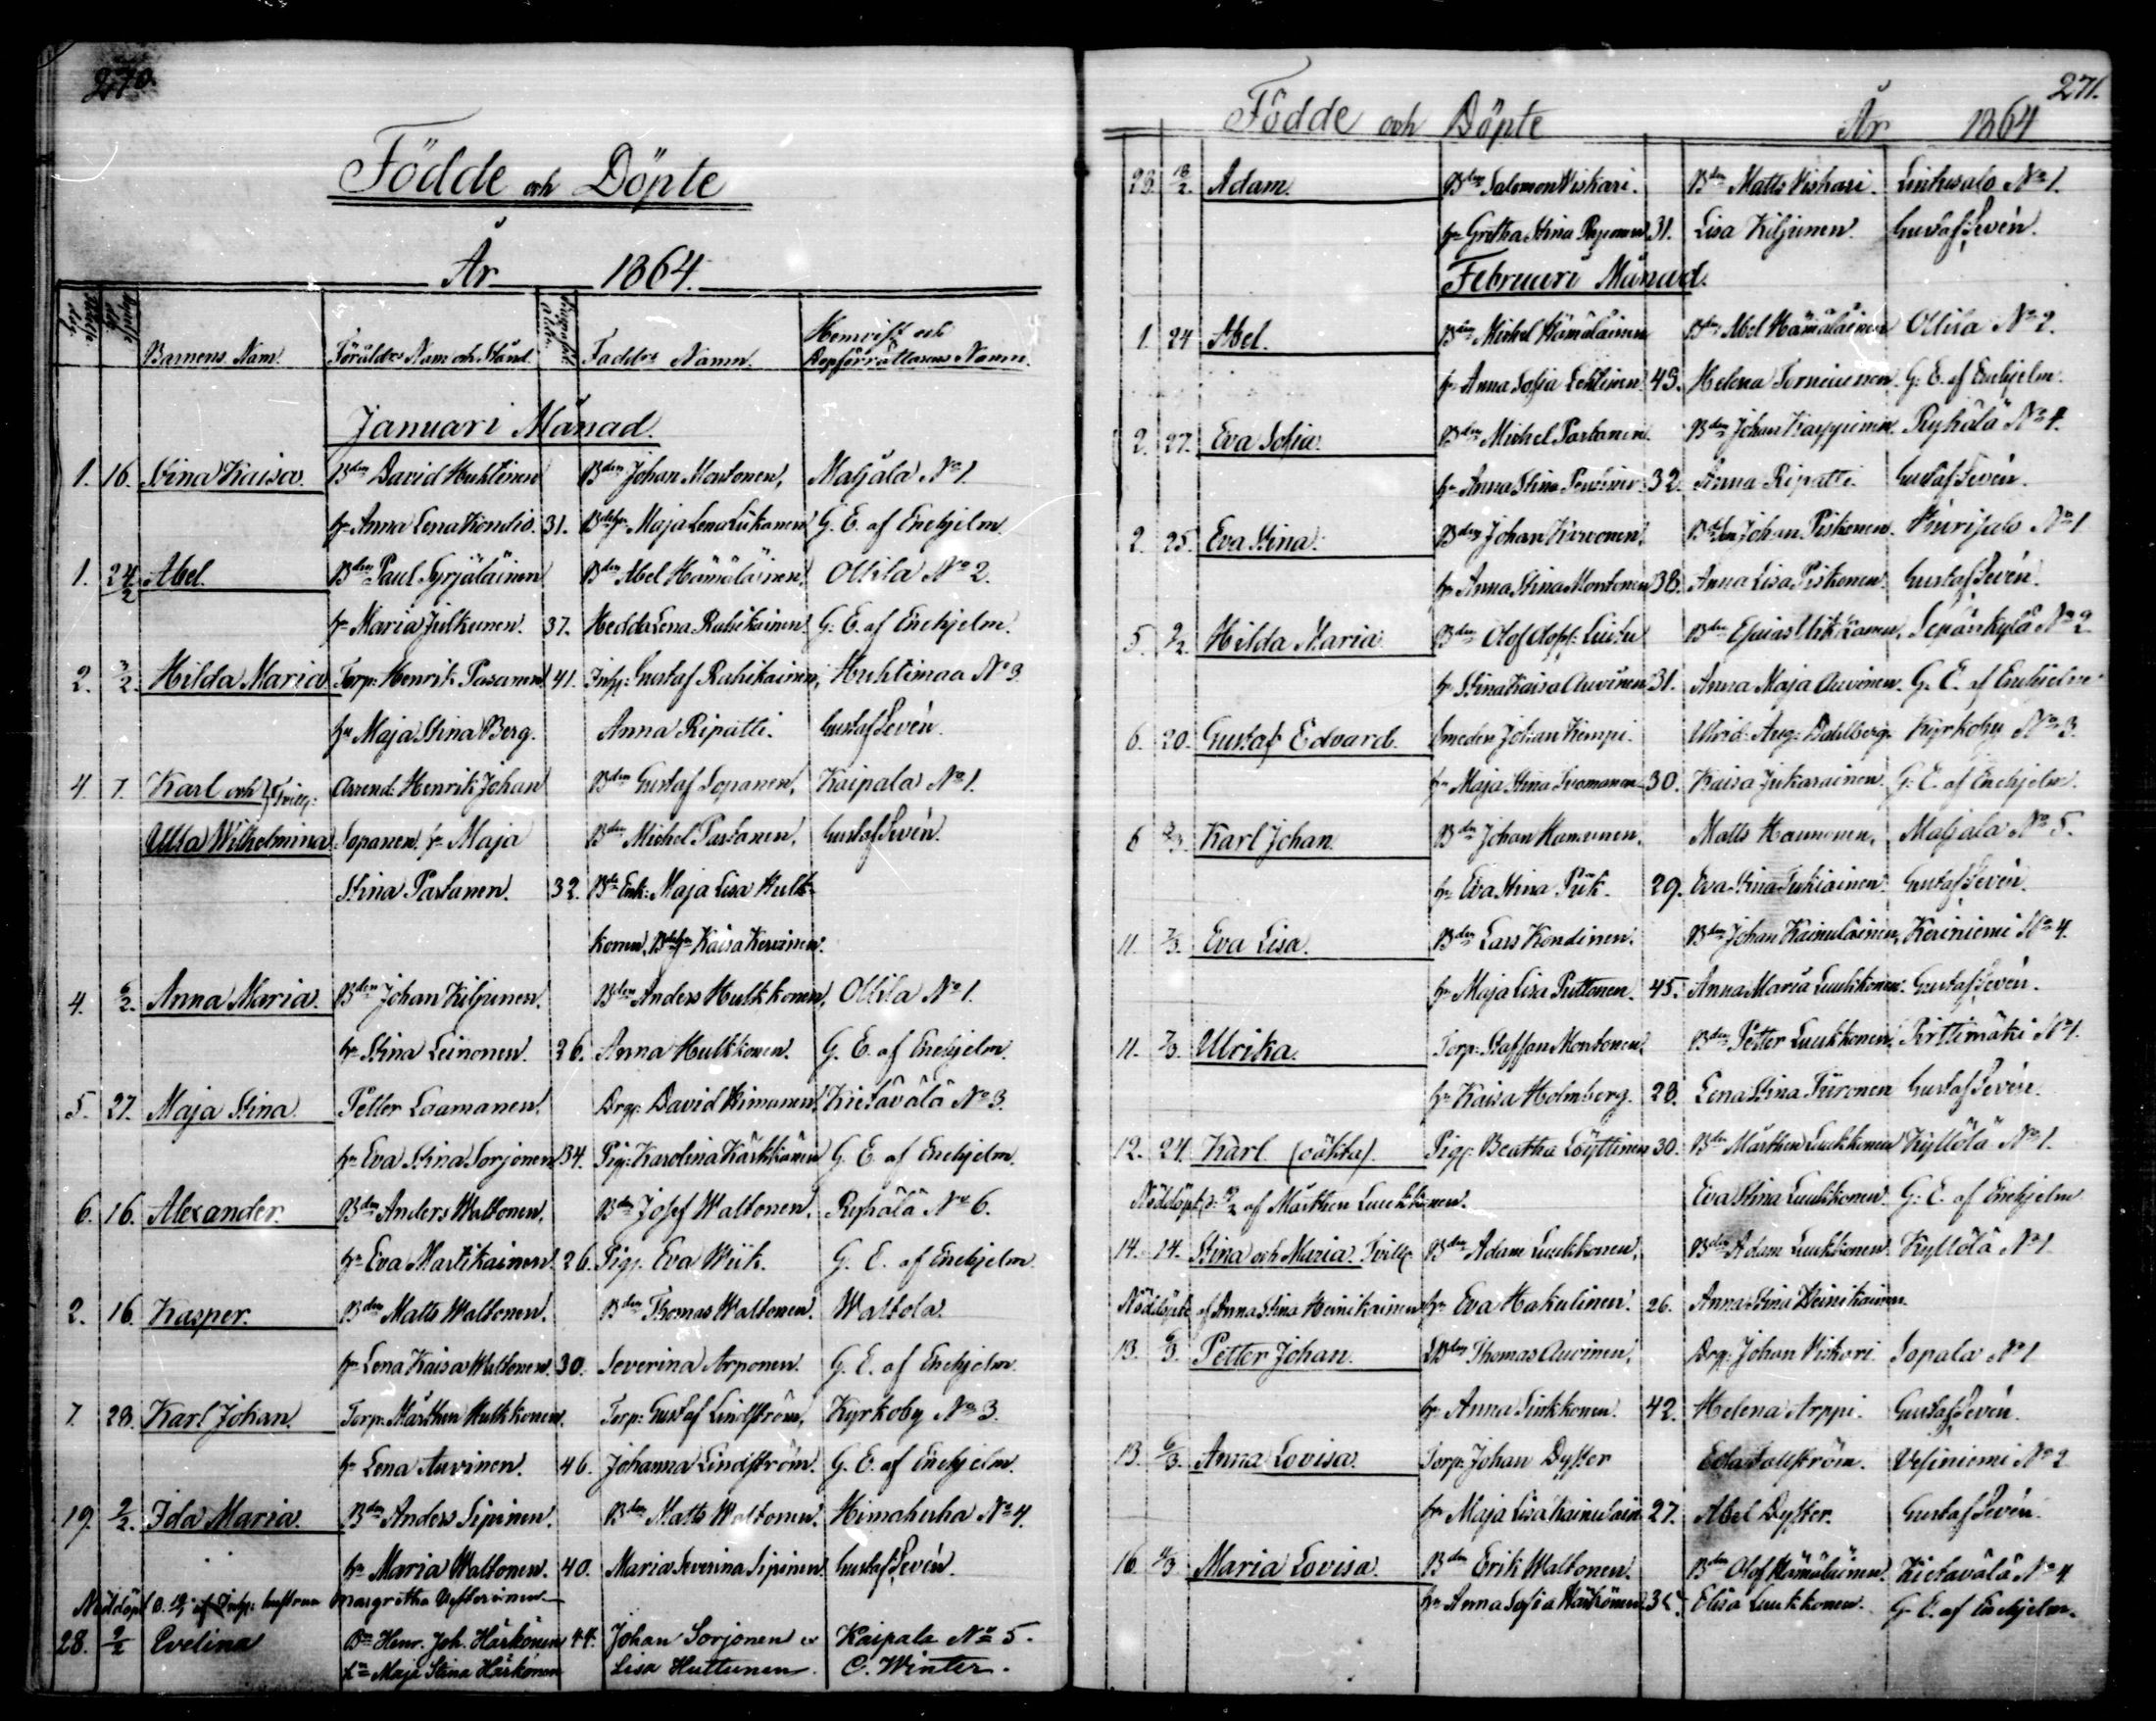 270.
Födde och Döpte
År 1864.
Barnens Namn. Föräldrs Namn och Stånd. Faddrs Namn. Hemvist och
Dopförrättarens Namn.
Januari Månad.
1. 16. Stina Kaisa. Bden David Huhtinen Bden Johan Montonen, Maljala No 1.
hu Anna Lena Kondis. 31. Bdehu Maja Lena Liikanen G. E. af Enehjelm.
1. 24/2 Abel. Bden Paul Syrjäläinen Bden Abel Hämäläinen, Ollila No 2.
hu Maria Julkunen. 37. Hedda Lena Rahikainen. G. E. af Enehjelm.
2. 3/2. Hilda Maria Torp: Henrik Pasanen 41. Inhy: Gustaf Rahikainen, Huhtimaa No 3
hu Maja Stina Berg. Anna Ripatti. Gustaf Levén.
4. 7. Karl och Tvill: Arrend: Henrik Johan Bden Gustaf Sopanen, Kaipala No 1.
Ulla Wilhelmina Sopanen, hu Maja Bden Michel Partanen, Gustaf Levén.
Stina Partanen. 32. Bde Enk: Maja Lisa Hulk-
konen, Bdehu Kaisa Kervinen.
4. 6/2. Anna Maria. Bden Johan Kiljunen. Bden Anders Hulkkonen, Ollila No 1.
hu Stina Leinonen. 26. Anna Hulkkonen. G. E. af Enehjelm.
5. 27. Maja Stina. Petter Laamanen. Drg: David Himanen, Kietävälä No 3.
hu Eva Stina Sorjonen 34. Pig: Karolina Kärkkäinen G. E. af Enehjelm.
6. 16. Alexander. Bden Anders Waltonen, Bden Josef Waltonen. Ryhälä No 6.
hu Eva Martikainen. 26. Pig: Eva Wiik. G. E. af Enehjelm
2. 16. Kasper. Bden Matts Waltonen. Bden Thomas Waltonen. Waltola.
hu Lena Kaisa Multonen. 30. Severina Arponen. G. E. af Enehjelm.
7. 28. Karl Johan. Torp: Mårthen Hulkkonen. Torp: Gustaf Lindström, Kyrkoby No 3.
hu Lena Auvinen. 46. Johanna Lindström. G. E. af Enehjelm.
19. 2/2. Ida Maria. Bden Anders Sipinen. Bden Matts Waltonen. Himahuha No 4.
hu Maria Waltonen. 40. Maria Severina Sipinen. Gustaf Levén.
Nöddöpt af Inhy: hustrun Margretha
28. 2/2 Evelina Bn Henr. Joh. Härkönen 44. Johan Sorjonen o Kaipala No 5.
hn Maja Stina Härkönen Lisa Huttunen. C. Winter.
271.
Födde och Döpte År 1864
28. 18/2. Adam. Bden Salomon Viskari. Bden Matts Viskari. Linkusalo No 1.
hu Gretha Stina 31. Lisa Kiljunen. Gustaf Levén.
Februari Månad.
1. 24 Abel. Bden Michel Hämäläinen Bden Abel Hämäläinen Ollila No 2.
hu Anna Sofia Lehtinen 43. Helena Torniainen. G. E. af Enehjelm.
2. 27. Eva Sofia. Bden Michel Partanen. Bden Johan Karppinen. Ryhälä No 4.
hu Anna Stina 32. Anna Ripatti. Gustaf Levén.
2. 25. Eva Stina. Bden Johan Karvonen, Bden Johan Piskonen. No 1
hu Anna Stina Montonen 38. Anna Lisa Piskonen. Gustaf Levén.
5. 2/2. Hilda Maria. Bden Olof Olofs: Bden Sepänkylä No 2
hu Stina Kaisa Auvinen 31. Anna Maja Auvinen. G. E. af Enehjelm.
6. 20. Gustaf Edvard. Smeden Johan Kempi. Aug: Dahlberg. Kyrkoby No 3.
hu Maja Stina Tuomanen 30. Kaisa Jukarainen. G. E. af Enehjelm.
6 2/3. Karl Johan. Bden Johan Hamunen. Matts Haunonen, Maljala No 5.
hu Eva Stina Piik. 29. Eva Stina Tukiainen. Gustaf Levén.
11. 7/3. Eva Lisa. Bden Lars Kondinen. Bden Johan Kainulainen, Keriniemi No 4.
hu Maja Lisa Puttonen. 45. Anna Maria Luukkonen. Gustaf Levén.
11. 7/3. Ulrika. Torp: Staffan Montonen, Bden Petter Luukkonen, Pirttimäki No 1.
hu Kaisa Holmberg. 28. Lena Stina Tiironen Gustaf Levén.
12. 24. Karl (oäkta). Pig: Beatha Löyttinen 30. Bden Mårthen Luukkonen Kyllölä No 1.
Nöddöpt af Mårthen Luukkonen. Eva Stina Luukkonen. G. E. af Enehjelm
14. 14. Stina och Maria. Tvill: Bden Adam Luukkonen, Bden Adam Luukkonen. Kyllölä No 1
Nöddöpte af Anna Stina Heinikainen hu Eva Hakulinen. 26. Anna Stina Heinikainen.
13. 6/3. Petter Johan. LBden Thomas Auvinen, Drg: Johan Viskari. Sopala No 1
hu Anna Sinkkonen. 42. Helena Arppi. Gustaf Levén.
13. 6/3. Anna Lovisa. Torp: Johan Dyster Eda Vesiniemi No 2
hu Maja Lisa Kainulain 27. Abel Dyster. Gustaf Levén.
16. 4/3 Maria Lovisa. Bden Erik Waltonen. Bden Olof Hämäläinen. Kietävälä No 4
hu Anna Sofia Härkönen 35. Elisa Luukkonen. G. E. af Enehjelm.